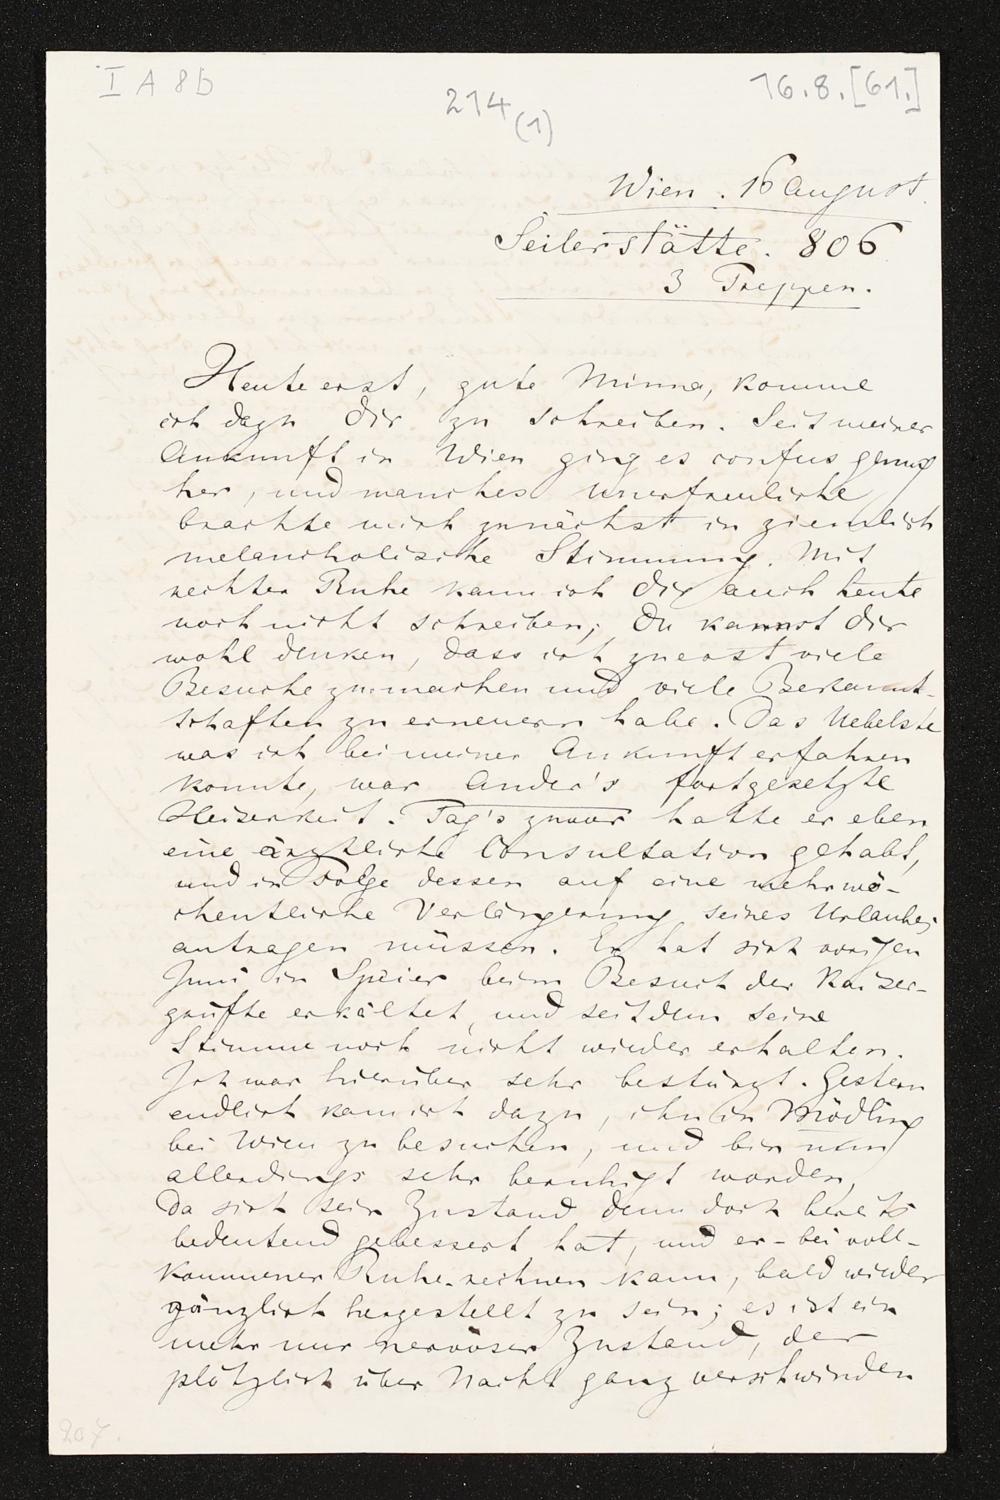 I A 8b
214
(1)
16.8.[61.]
Wien. 16 August.
Seilerstätte. 806
3 Treppen.
Heute erst, gute Minna, komme
ich dazu Dir zu schreiben. Seit meiner
Ankunft in Wien ging es confus genug
her, und manches Unerfreuliche
brachte mich zunächst in ziemlich
melancholische Stimmung. Mit
rechter Ruhe kann ich Dir auch heute
noch nicht schreiben; Du kannst Dir
wohl denken, dass ich zuerst viele
Besuche zu machen und viele Bekannt-
schaften zu erneuern habe. Das Uebelste
was ich bei meiner Ankunft erfahren
konnte, war Ander's fortgesetzte
Heiserkeit. Tag's zuvor hatte er eben
eine ärztliche Consultation gehabt,
und in Folge dessen auf eine mehrwö-
chentliche Verlängerung seines Urlaubes
antragen müssen. Er hat sich vorigen
Juni in Speier beim Besuch der Kaiser-
grüfte erkältet, und seitdem seine
Stimme noch nicht wieder erhalten.
Ich war hierüber sehr bestürzt. Gestern
endlich kam ich dazu, ihn in Mödling
bei Wien zu besuchen, und bin nun
allerdings sehr beruhigt worden,
da sich sein Zustand denn doch bereits
bedeutend gebessert hat, und er - bei voll-
kommener Ruhe - rechnen kann, bald wieder
gänzlich hergestellt zu sein; es ist ein
mehr nur nervöser Zustand, der
plötzlich über Nacht ganz verschwinden
207.